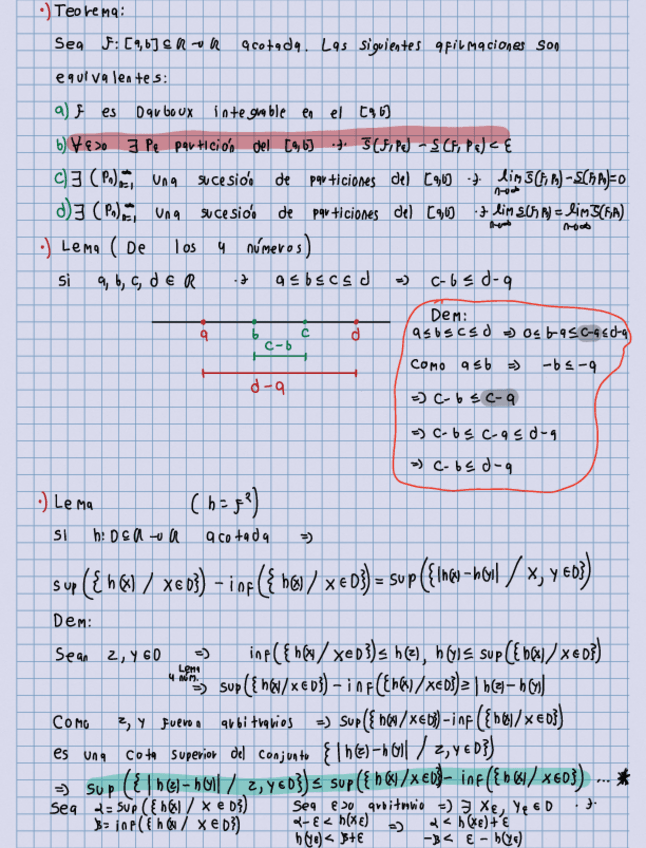 ·) Teorema:
Sea f: [a,b] ⊆ ℝ → ℝ acotada. Las siguientes afirmaciones son
equivalentes:
a) f es Darboux integrable en el [a,b]
b) ∀ε>0 ∃ Pε partición del [a,b] ·∋· S̅(f,Pε) - S̲(f,Pε) < ε
c) ∃ (Pn)_{n=1}^∞ una sucesión de particiones del [a,b] ·∋ lim_{n→∞} S̅(f,Pn) - S̲(f,Pn) = 0
d) ∃ (Pn)_{n=1}^∞ una sucesión de particiones del [a,b] ·∋ lim_{n→∞} S̲(f,Pn) = lim_{n→∞} S̅(f,Pn)
·) Lema (De los 4 números)
si a, b, c, d ∈ ℝ ·∋ a ≤ b ≤ c ≤ d ⇒ c-b ≤ d-a
a b c d
c-b
d-a
Dem:
a ≤ b ≤ c ≤ d ⇒ 0 ≤ b-a ≤ c-a ≤ d-a
Como a ≤ b ⇒ -b ≤ -a
⇒ c-b ≤ c-a
⇒ c-b ≤ c-a ≤ d-a
⇒ c-b ≤ d-a
·) Lema (h = f²)
si h: D ⊆ ℝ → ℝ acotada ⇒
sup({h(x) / x∈D}) - inf({h(x) / x∈D}) = sup({|h(x)-h(y)| / x, y ∈D})
Dem:
Sean z, y ∈ D ⇒ inf({h(x) / x∈D}) ≤ h(z), h(y) ≤ sup({h(x) / x∈D})
Lema 4 núm. ⇒ sup({h(x) / x∈D}) - inf({h(x) / x∈D}) ≥ |h(z)-h(y)|
Como z, y fueron arbitrarios ⇒ sup({h(x) / x∈D}) - inf({h(x) / x∈D})
es una cota superior del conjunto {|h(z)-h(y)| / z, y∈D}
⇒ sup({|h(z)-h(y)| / z, y∈D}) ≤ sup({h(x) / x∈D}) - inf({h(x) / x∈D}) ... *
Sea α = sup({h(x) / x∈D})
β = inf({h(x) / x∈D})
Sea ε>0 arbitrario ⇒ ∃ xε, yε ∈ D ·∋·
α-ε < h(xε) ⇒ α < h(xε)+ε
h(yε) < β+ε -β < ε - h(yε)